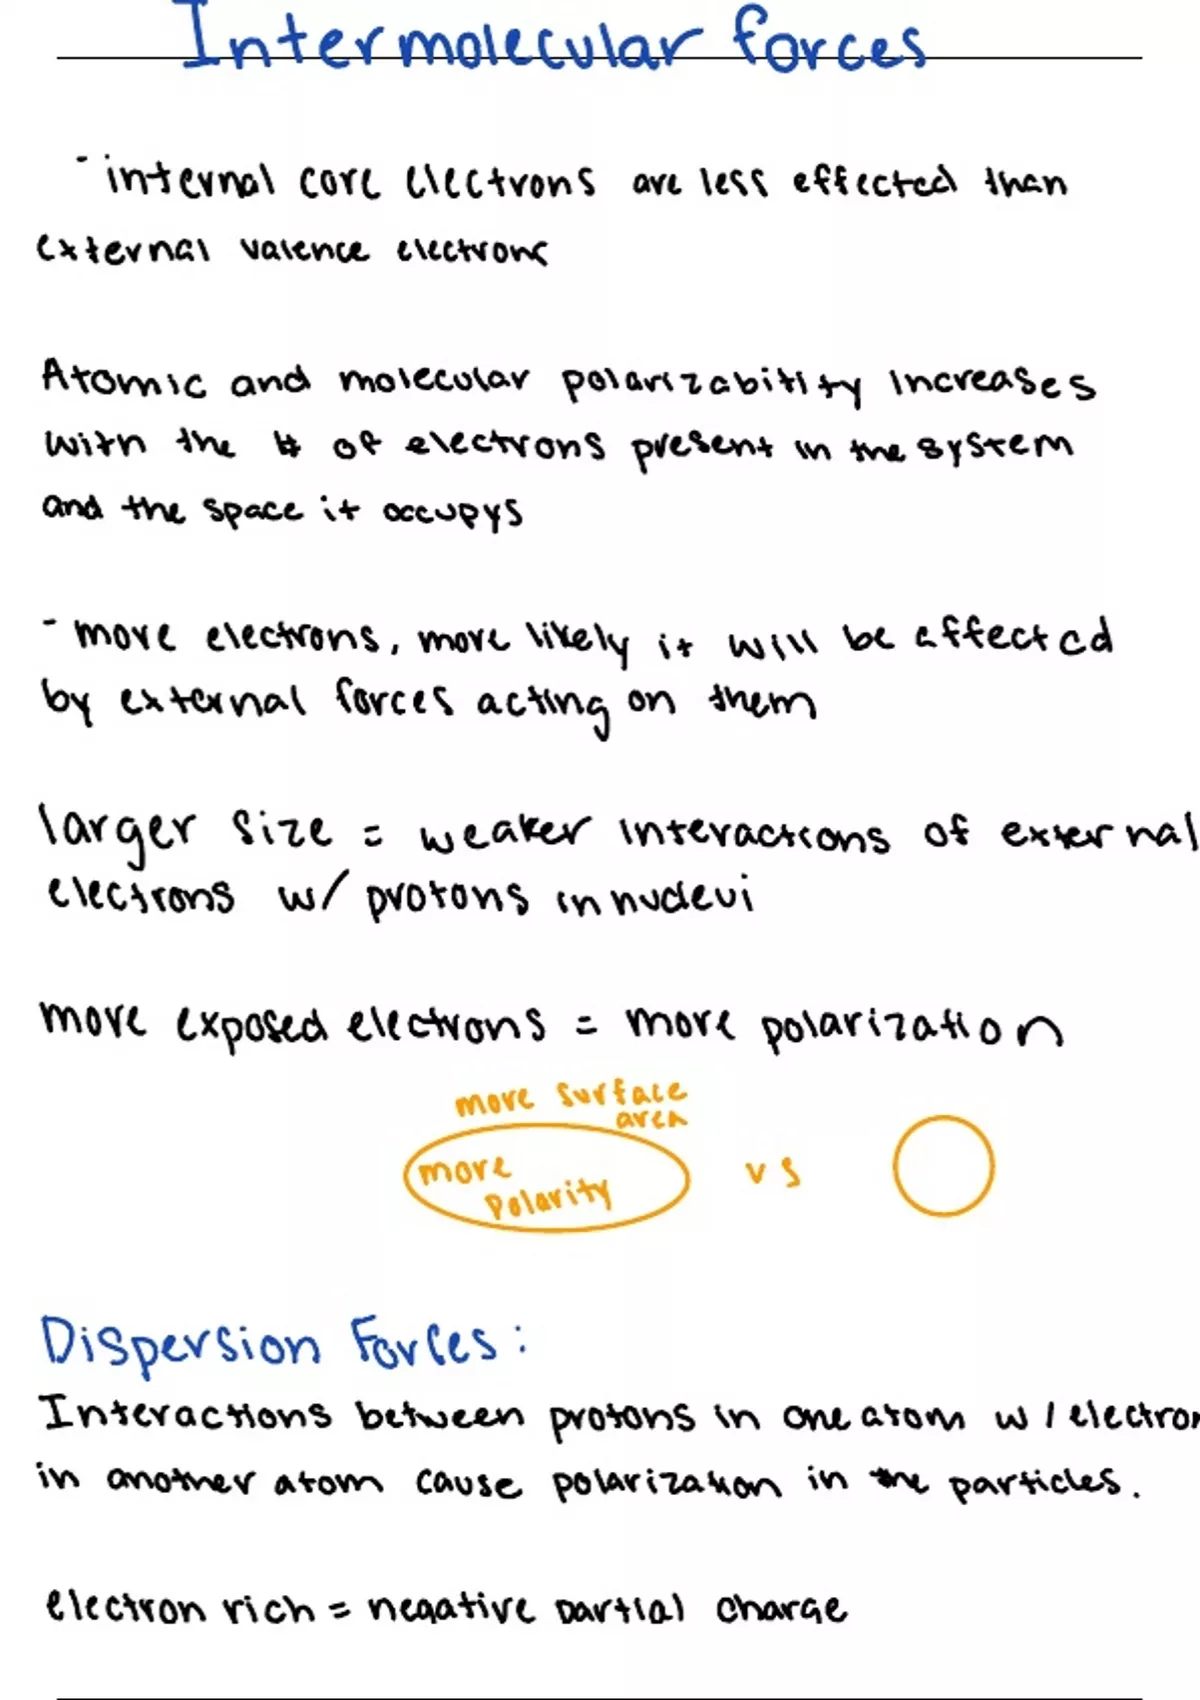 Intermolecular forces
- internal core electrons are less effected than
external valence electrons
Atomic and molecular polarizability increases
with the # of electrons present in the system
and the space it occupys
- more electrons, more likely it will be affected
by external forces acting on them
larger size = weaker interactions of external
electrons w/ protons in nucleui
more exposed electrons = more polarization
more surface
area
more
polarity
vs
Dispersion Forces:
Interactions between protons in one atom w/ electron
in another atom cause polarization in the particles.
electron rich = negative partial charge